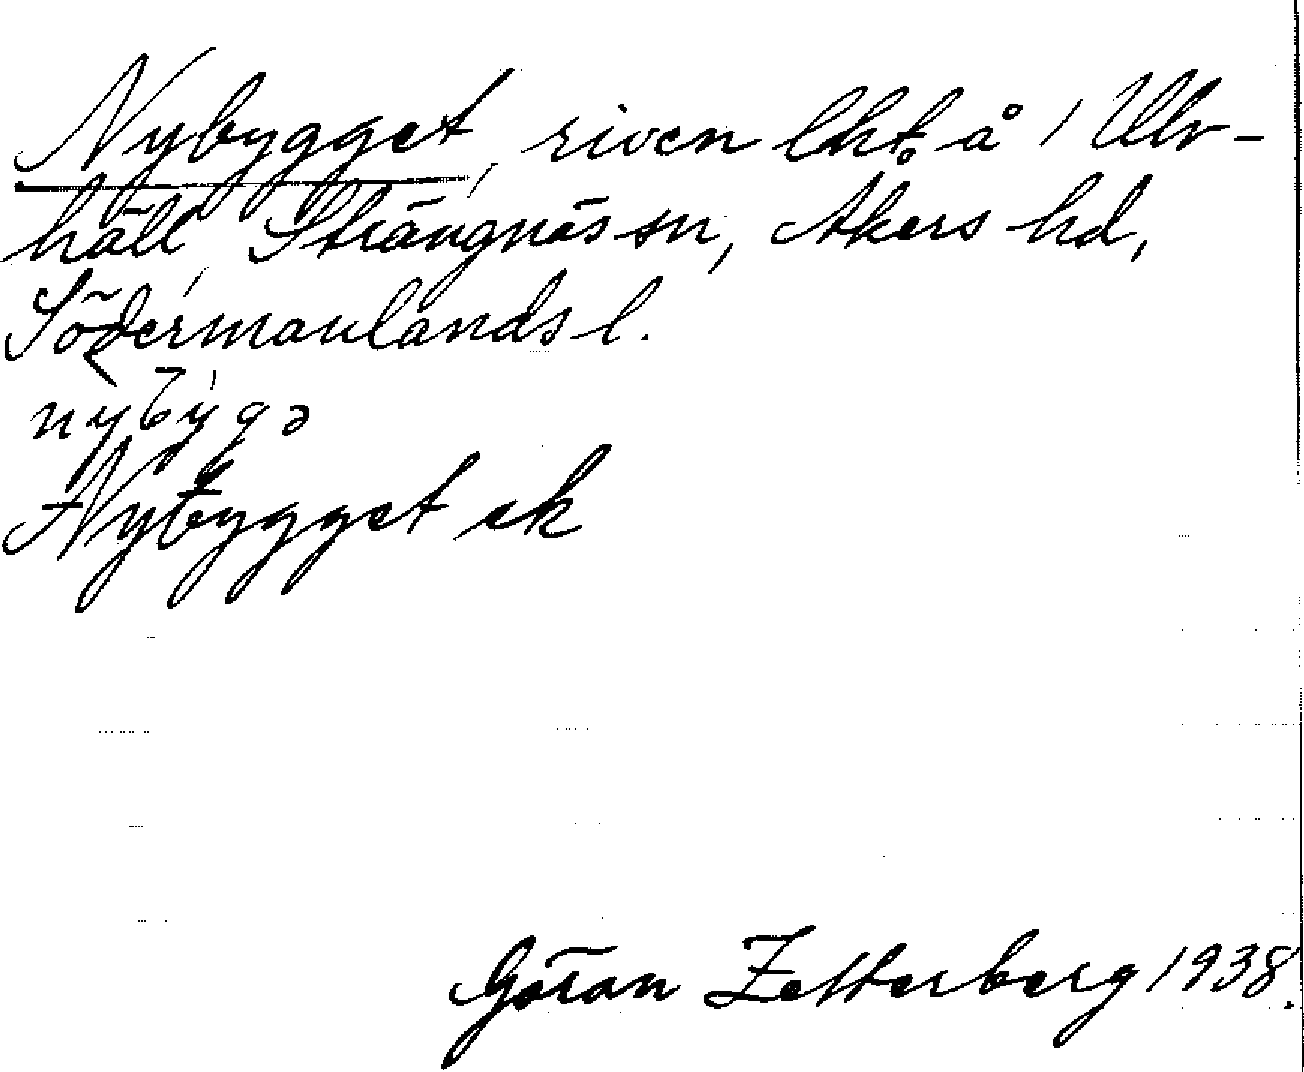 Nybygget, riven lht å 1 Ulv-
häll, Strängnäs sn, Åkers hd,
Södermanlands l.
nybygə
Nybygget ek
Göran Zetterberg 1938.